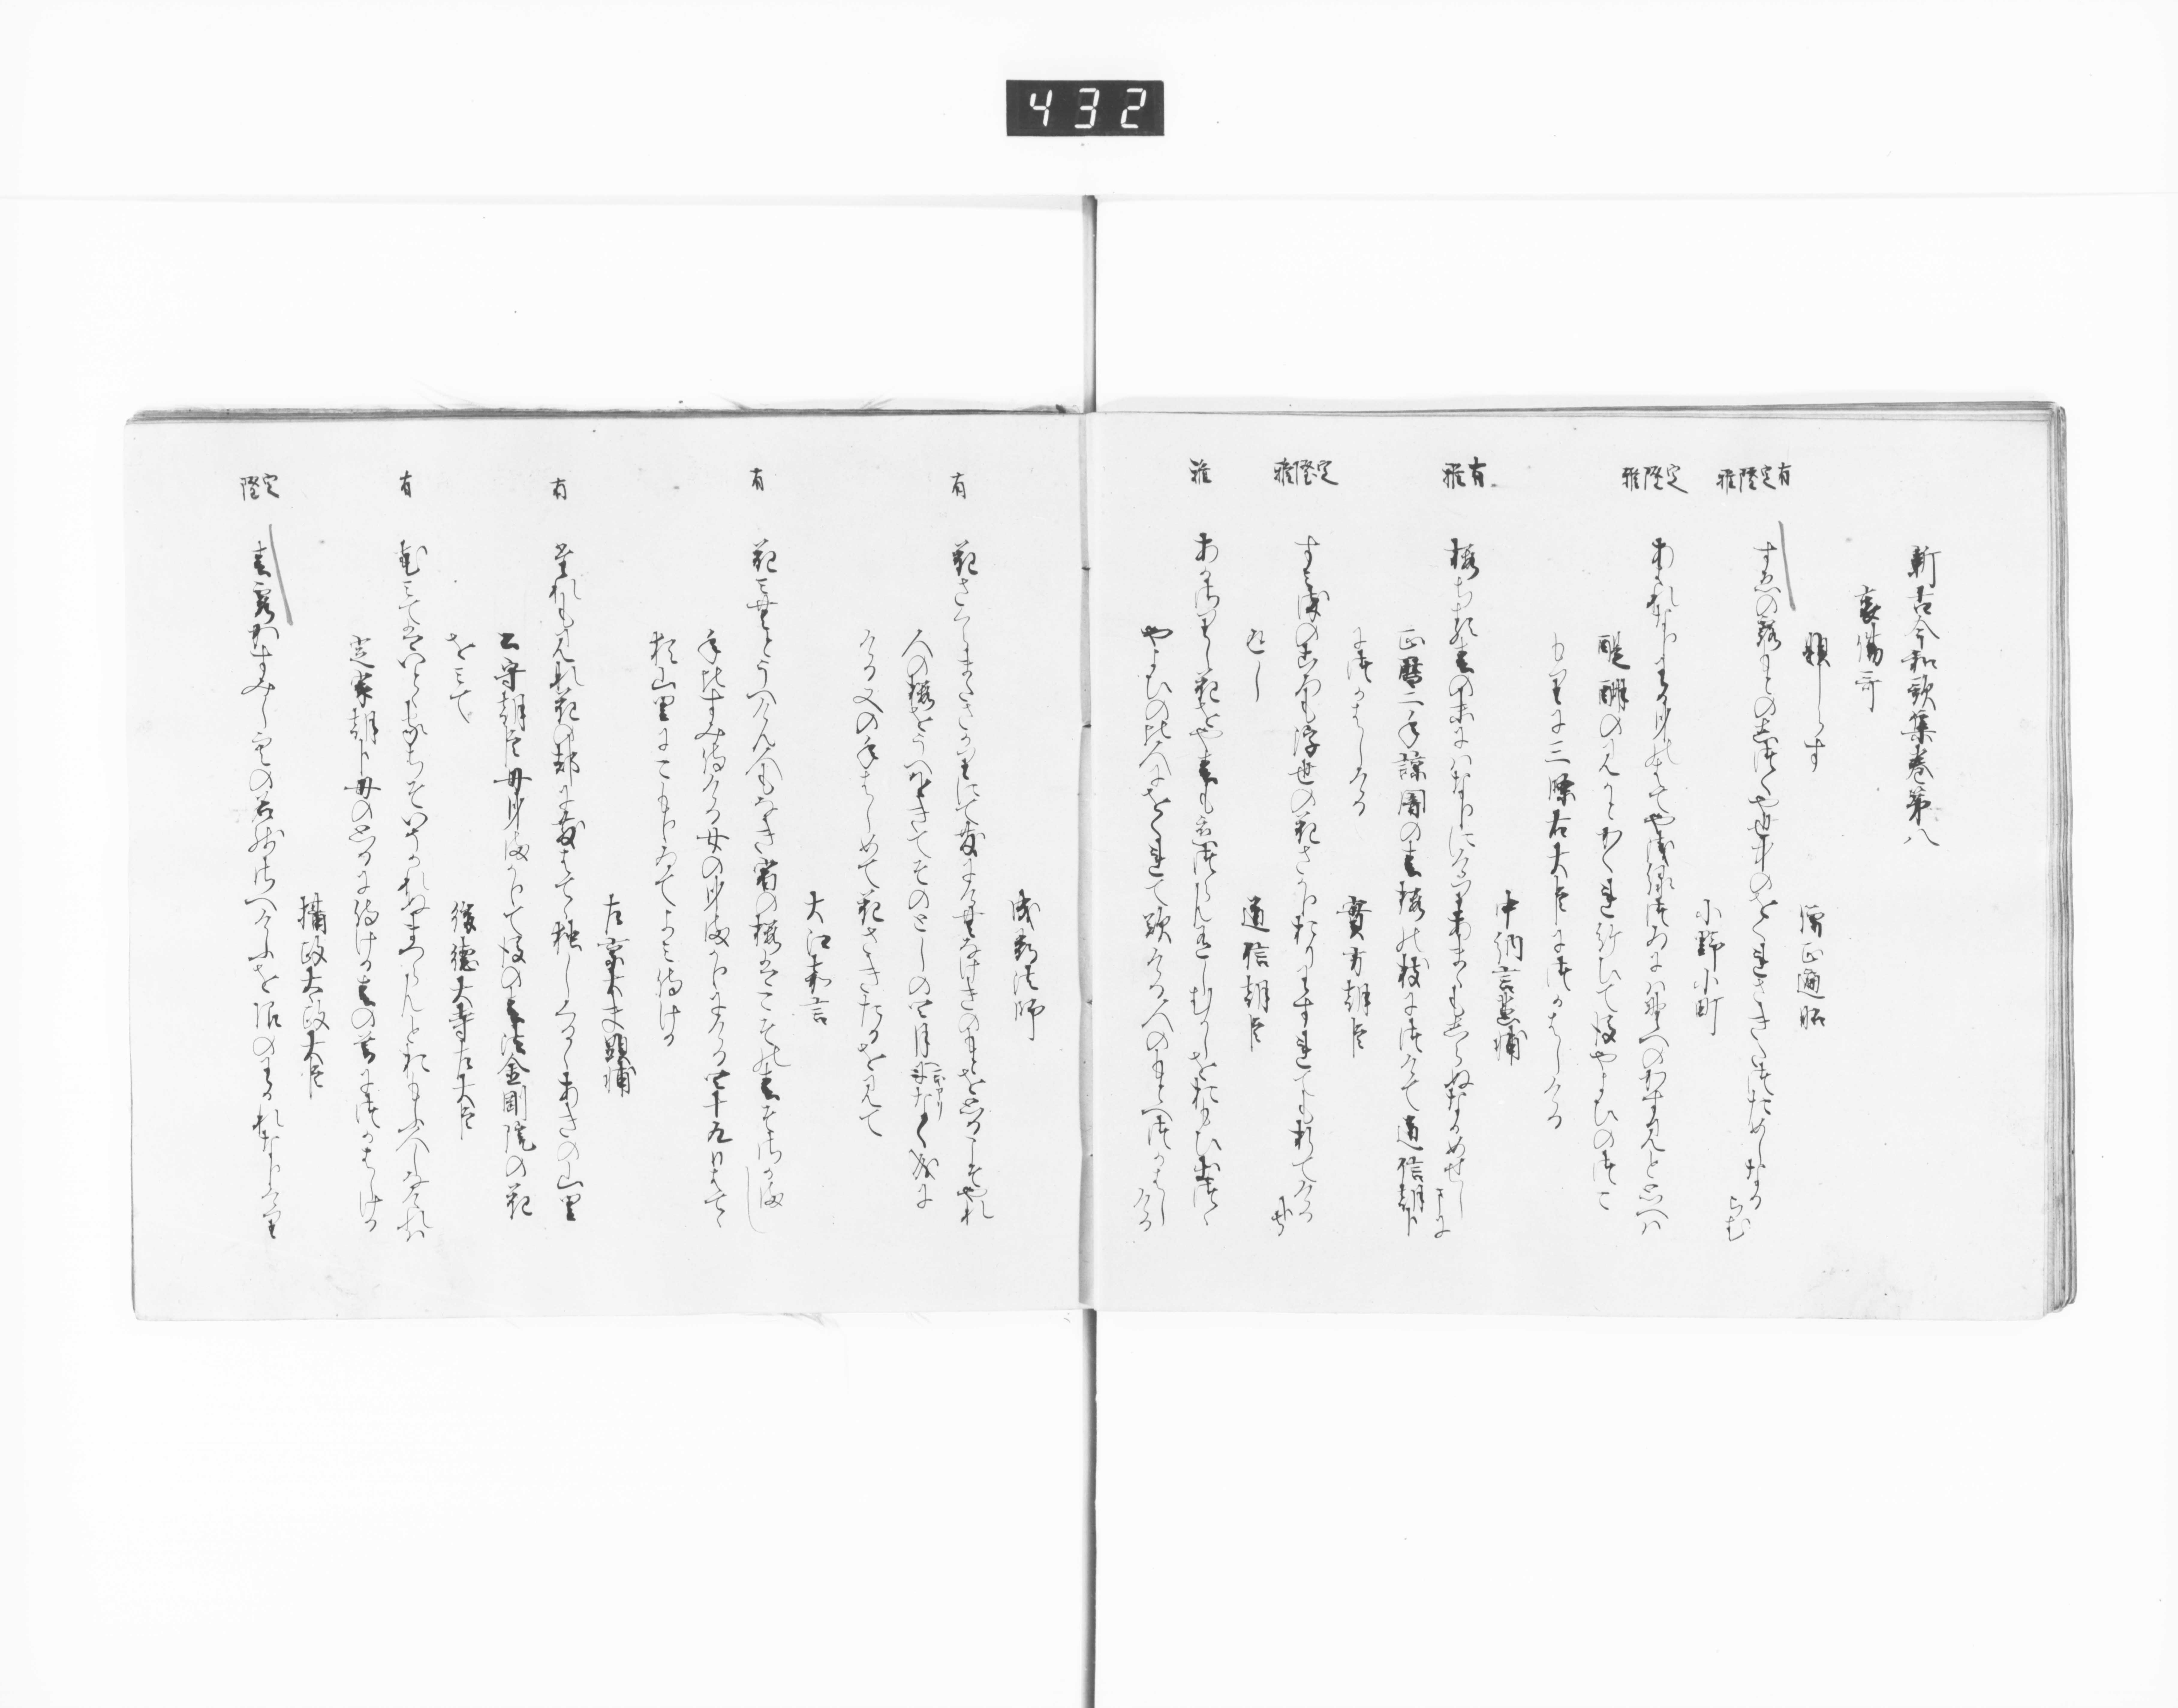 新古今和歌集巻第八
哀傷哥
題しらす　僧正遍昭
有定隆雅
すゑの露もとのしつくや世中のをくれさきたつためしなるらむ
小野小町
定隆雅
あはれなりわか身のはてやあさみとりつゐには野へのかすみと思へは
醍醐のみかとかくれ給ひて後やよひのつこ
もりに三條右大臣につかはしける
中納言兼輔
有雅
桜ちる春の末にはなりにけりあまゝもしらぬなかめせしまに
正暦二年諒闇の春桜の枝につけて道信朝臣
につかはしける　實方朝臣
定隆雅
すみそめのころも浮世の花さかりおりわすれてもおりてけるかな
返し　道信朝臣
雅
あかさりし花をや春もこひつらんありしむかしをおもひいてつゝ
やよひの比人にをくれて歎ける人のもとへつかはしける
成尋法師
有
花さくらまたさかりにてちりにけんなけきのもとを思ひこそやれ
人の桜をうへをきてそのとしの四月になくなりに
ける又の年はしめて花さきたるを見て
大江嘉言
有
花みんとうへけん人もなき宿の桜はこその春そさかまし
年比すみ侍ける女の身まかりにける四十九日はてゝ
猶山里にこもりゐてよみ侍ける
左京大夫顕輔
有
たれもみな花の都にちりはてゝ独しくるゝあきの山里
公守朝臣母身まかりて後の春法金剛院の花
をみて　後徳大寺左大臣
有
花みてはいとゝ家ちそいそかれぬまつらんと思ふ人しなけれは
定家朝臣母の思に侍ける春の暮につかはしける
摂政太政大臣
定隆
春霞かすみしそらの名残さへけふをかきりのわかれなりけり
432